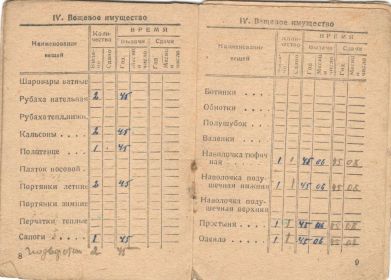 IV. Вещевое имущество
Наименование вещей
Количество
ВРЕМЯ
Выдано
Сдано
Выдачи
Сдачи
Год
Месяц и число
Год
Месяц и число
Шаровары ватные
Рубаха нательная 2 45
Рубаха тепл. нижн.
Кальсоны 2 45
Полотенце 1 45
Платок носовой
Портянки летние 2 45
Портянки зимние
Перчатки теплые
Сапоги 1 45
2 45
8
IV. Вещевое имущество
Наименование вещей
Количество
ВРЕМЯ
Выдано
Сдано
Выдачи
Сдачи
Год
Месяц и число
Год
Месяц и число
Ботинки
Обмотки
Полушубок
Валенки
Наволочка тюфячная 1 1 45 06 45 08
Наволочка подушечная нижняя 1 1 45 06 45 08
Наволочка подушечная верхняя
Простыня 1 1 45 06 45 08
Одеяло 1 1 45 06 45 08
9